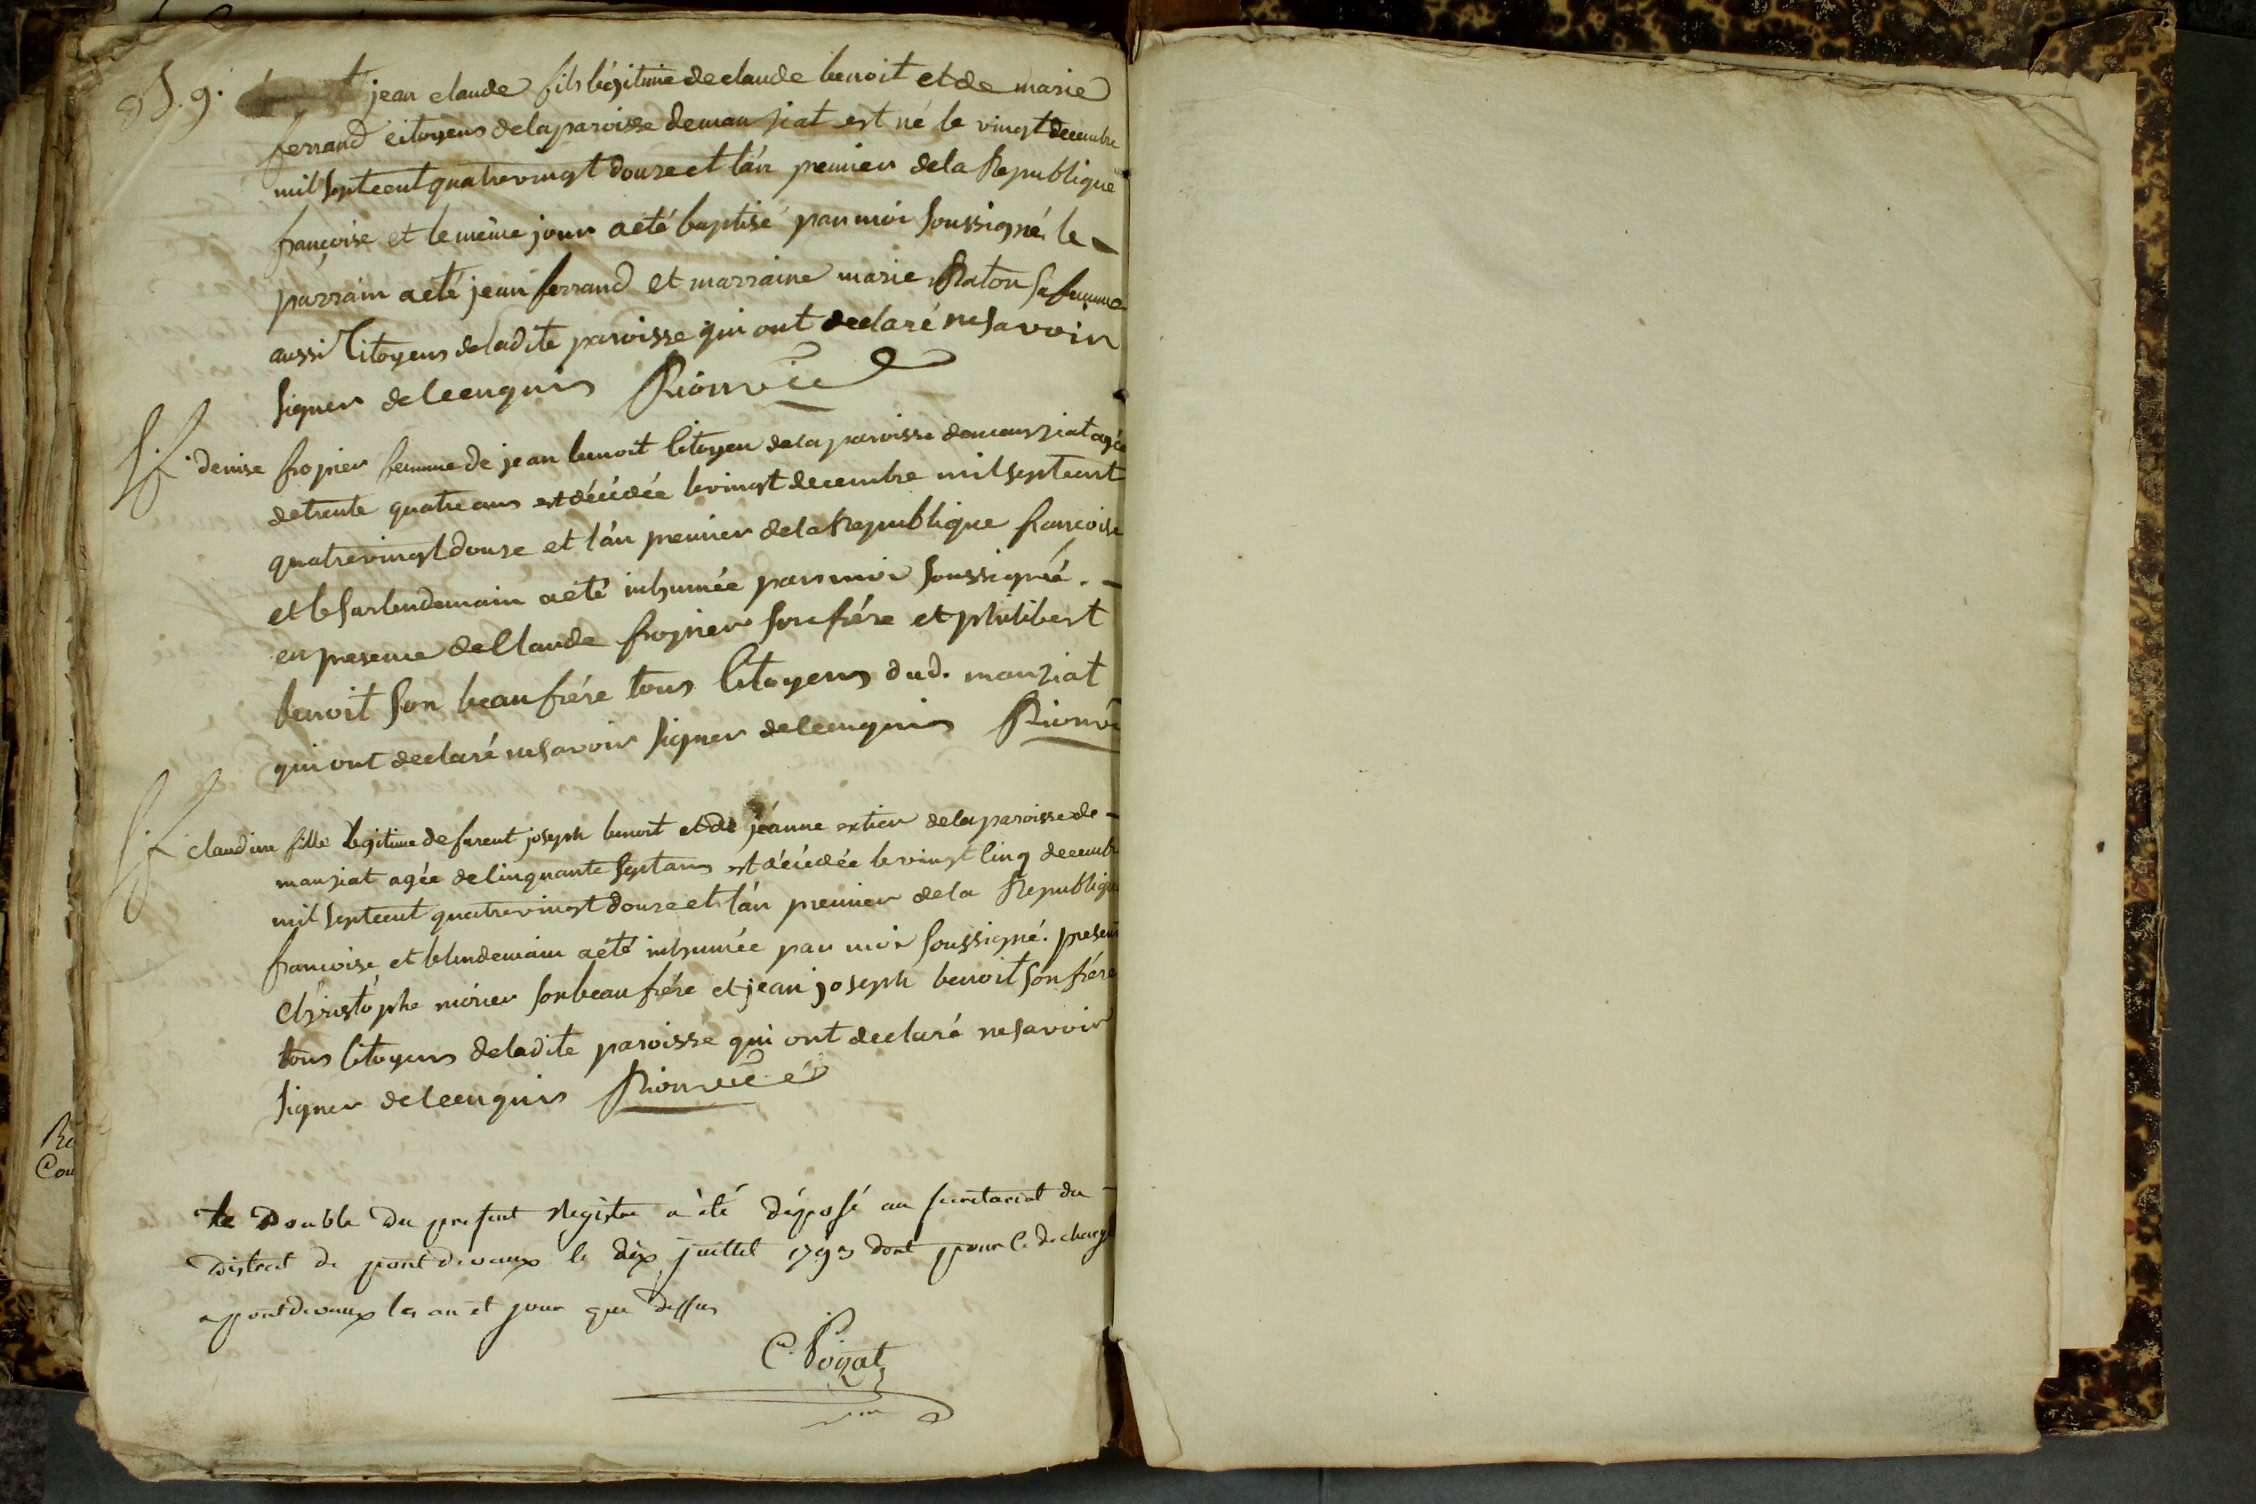 jean claude fils légitime de claude benoit et de marie
ferrand citoyens de la paroisse de manziat est né le vingt decembre
mil sept cent quatrevingt douze et l'an premier de la Republique
françoise et le même jour a eté baptisé par moi soussigné. le -
parrain a eté jean ferrand et marraine marie Raton sa femme
aussi Citoyens de ladite paroisse qui ont declaré ne savoir
signer de ce enquis
denise frojier femme de jean benoit Citoyen de la paroisse de manziat agée
de trente quatre ans est décédée le vingt decembre mil sept cent
quatrevingt douze et l'an premier de la Republique françoise
et le surlendemain a eté inhumée par moi soussigné. -
en presence de Claude frojier son frére et philibert
benoit son beau frére tous Citoyens dud. manziat
qui ont declaré ne savoir signer de ce enquis
claudine fille légitime de furent joseph benoit et de jeanne de la paroisse de -
manziat agée de Cinquante sept ans est décédée le vingt Cinq decembre
mil sept cent quatrevingt douze et l'an premier de la Republique
francoise et le lendemain a eté inhumée par moi soussigné. present
Christophe son beau frére et jean joseph benoit son frére
tous Citoyens de ladite paroisse qui ont declaré ne savoir
signer de ce enquis
le Double du present Registre a été déposé au secretariat du -
District de pontdevaux le dix juillet 1793 dont pour le decharge
a pontdevaux les an et jour que dessus
C. Poizat